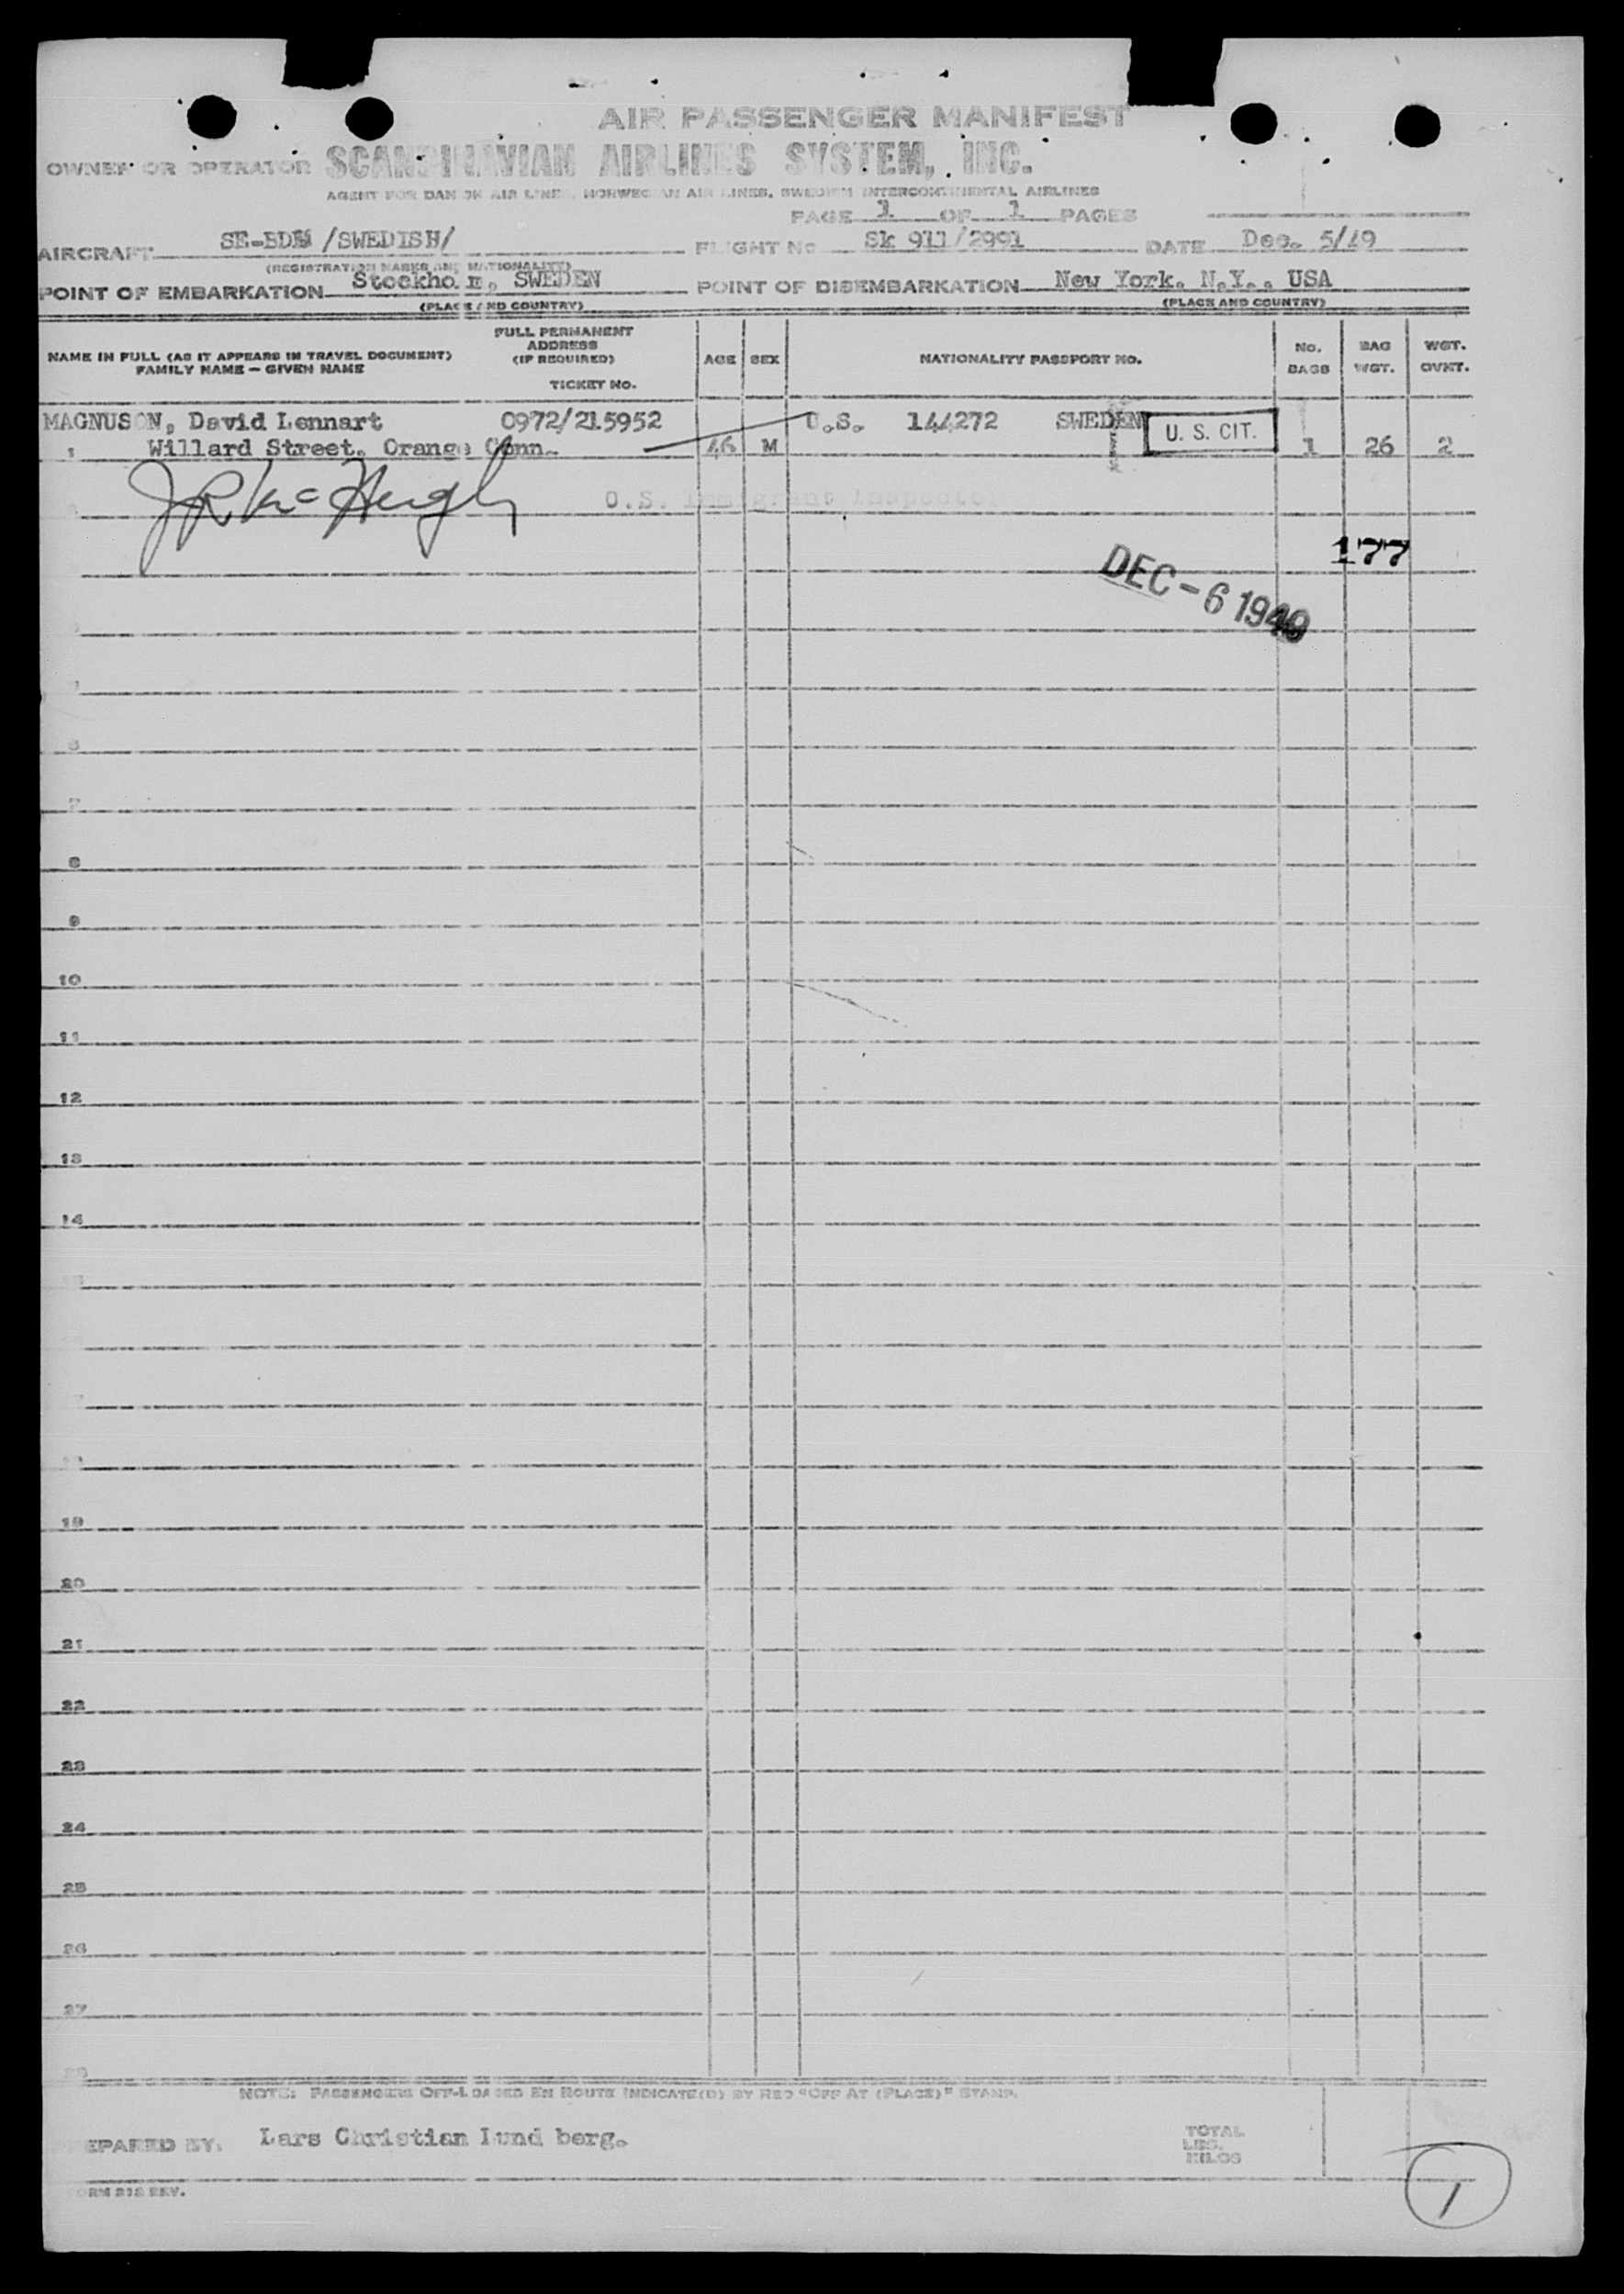 AIR PASSENGER MANIFEST
OWNER OR OPERATOR SCANDINAVIAN AIRLINES SYSTEM, INC.
AGENT FOR DANISH AIR LINES, NORWEGIAN AIR LINES, SWEDISH INTERCONTINENTAL AIRLINES
PAGE 1 OF 1 PAGES
AIRCRAFT SE-BDM /SWEDISH/ FLIGHT No Sk 911/2991 DATE Dec. 5/49
(REGISTRATION MARKS AND NATIONALITY)
POINT OF EMBARKATION Stockholm, SWEDEN POINT OF DISEMBARKATION New York. N.Y.. USA
(PLACE AND COUNTRY) (PLACE AND COUNTRY)
NAME IN FULL (AS IT APPEARS IN TRAVEL DOCUMENT) FAMILY NAME — GIVEN NAME FULL PERMANENT ADDRESS (IF REQUIRED) TICKET NO. AGE SEX NATIONALITY PASSPORT NO. No. BAGS BAG WGT. WGT. OVNT.
MAGNUSON, David Lennart 0972/215952 U.S. 144272 SWEDEN U. S. CIT.
1 Willard Street. Orange Conn. 46 M 1 26 2
J R McHugh U.S. Immigrant Inspector
177
DEC -6 1949
6
7
8
9
10
11
12
13
14
19
20
21
22
23
24
25
26
27
28
NOTE: PASSENGERS OFF-LOADED EN ROUTE INDICATE(D) BY RED "OFF AT (PLACE)" STAMP.
PREPARED BY. Lars Christian Lund berg.
TOTAL
LBS.
KILOS
FORM 218 REV.
1